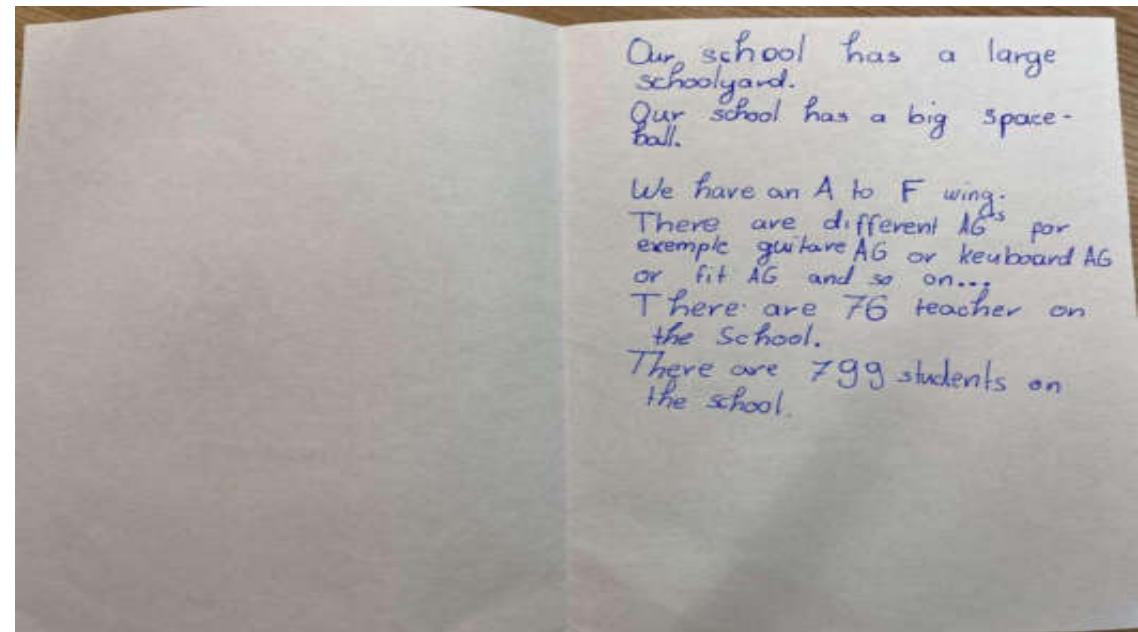 Our school has a large
schoolyard.
Our school has a big space-
ball.
We have an A to F wing.
There are different AG's for
exemple guitare AG or keuboard AG
or fit AG and so on...
There are 76 teacher on
the School.
There are 799 students on
the school.